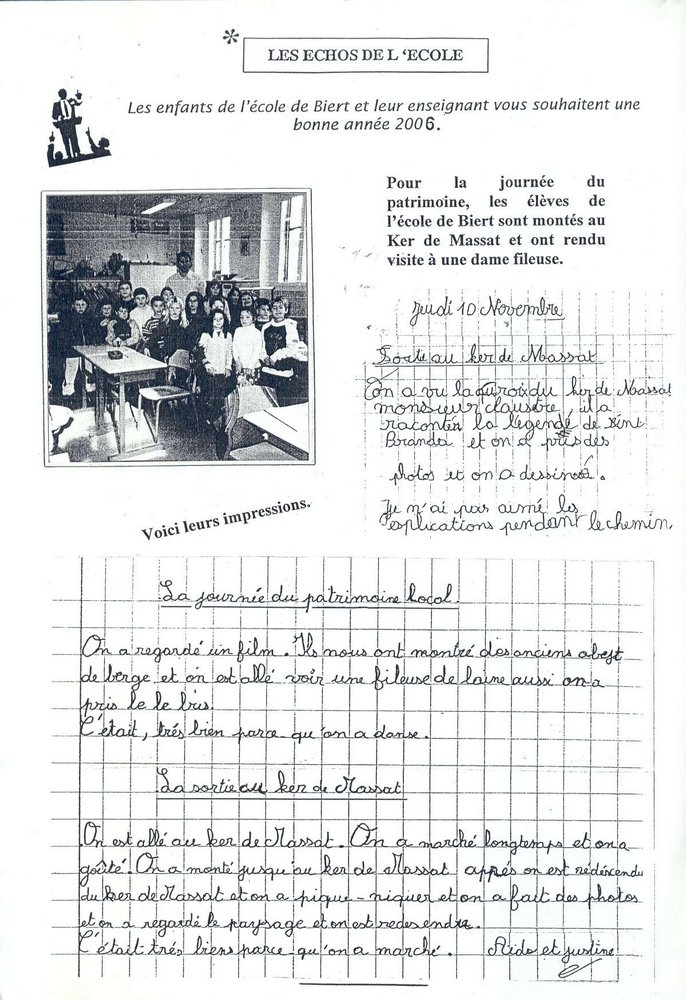 *
LES ECHOS DE L 'ECOLE
Les enfants de l'école de Biert et leur enseignant vous souhaitent une
bonne année 2006.
Pour la journée du
patrimoine, les élèves de
l'école de Biert sont montés au
Ker de Massat et ont rendu
visite à une dame fileuse.
Jeudi 10 Novembre
Sortie au ker de Massat
On a vu la croix du ker de Massat
monsieur claustre, il a
racontér la légende de
Branda et on a pris des
photos et on a dessiné.
Je n'ai pas aimé les
explications pendant le chemin.
Voici leurs impressions.
La journée du patrimoine local
On a regardé un film. Ils nous ont montré des anciens abejt
de berge et on est allé voir une fileuse de laine aussi on a
pris le le bus.
C'était, trés bien parce qu'on a danse.
La sortie au ker de Massat
On est allé au ker de Massat. On a marché longtemps et on a
goûté. On a monté jusqu'au ker de Massat appés on est redéscendu
du ker de Massat et on a pique-niquer et on a fait des photos
et on a regardé le paysage et on est redesendre.
C'était trés biens parce qu'on a marché. Aido et justine